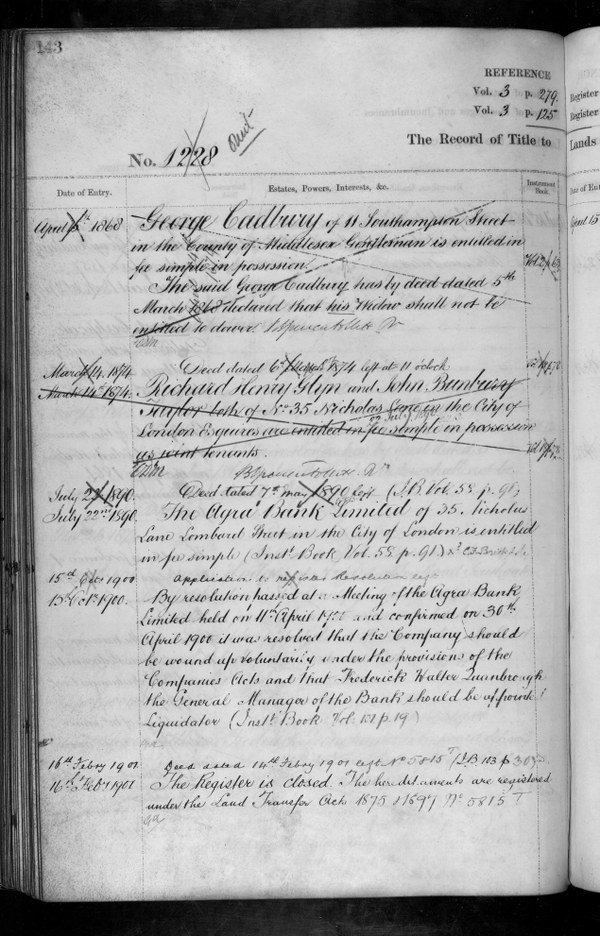 143
REFERENCE
Vol. 3 p. 279.
Vol. 3 p. 125
The Record of Title to
No. 1228
Date of Entry.
Estates, Powers, Interests, &c.
Instrument Book.
April 15th 1868
George Cadbury of 11 Southampton Street
in the County of Middlesex Gentleman is entitled in
fee simple in possession.
The said George Cadbury has by deed dated 5th
March 1868 declared that his Widow shall not be
entitled to dower.
March 14. 1874
Deed dated 6th March 1874 left at 11 o'clock
March 14th 1874.
Richard Henry Glyn and John Bunbury
Taylor both of No 35 Nicholas Lane in the City of
London Esquires are entitled in fee simple in possession
as joint tenants.
July 22nd 1890.
Deed dated 7th May 1890 left (I.B. Vol. 58 p. 91)
July 22nd 1890
The Agra Bank Limited of 35. Nicholas
Lane Lombard Street in the City of London is entitled
in fee simple (Inst. Book Vol. 58 p. 91.)
15th Octr 1900
Application to register Resolution
15th Octr 1900.
By resolution passed at a Meeting of the Agra Bank
Limited held on 11th April 1900 and confirmed on 30th
April 1900 it was resolved that the Company should
be wound up voluntarily under the provisions of the
Companies Acts and that Frederick Walter
the General Manager of the Bank should be appointed
Liquidator (Inst. Book Vol. 101 p. 19)
16th Febry 1901
Deed dated 14th Febry 1901 No 5815 T (I.B 103 p 30
16th Feby 1901
The Register is closed. The hereditaments are registered
under the Land Transfer Acts 1875 & 1897 No 5815 T
Register
Register
Lands
Date of Ent
April 15